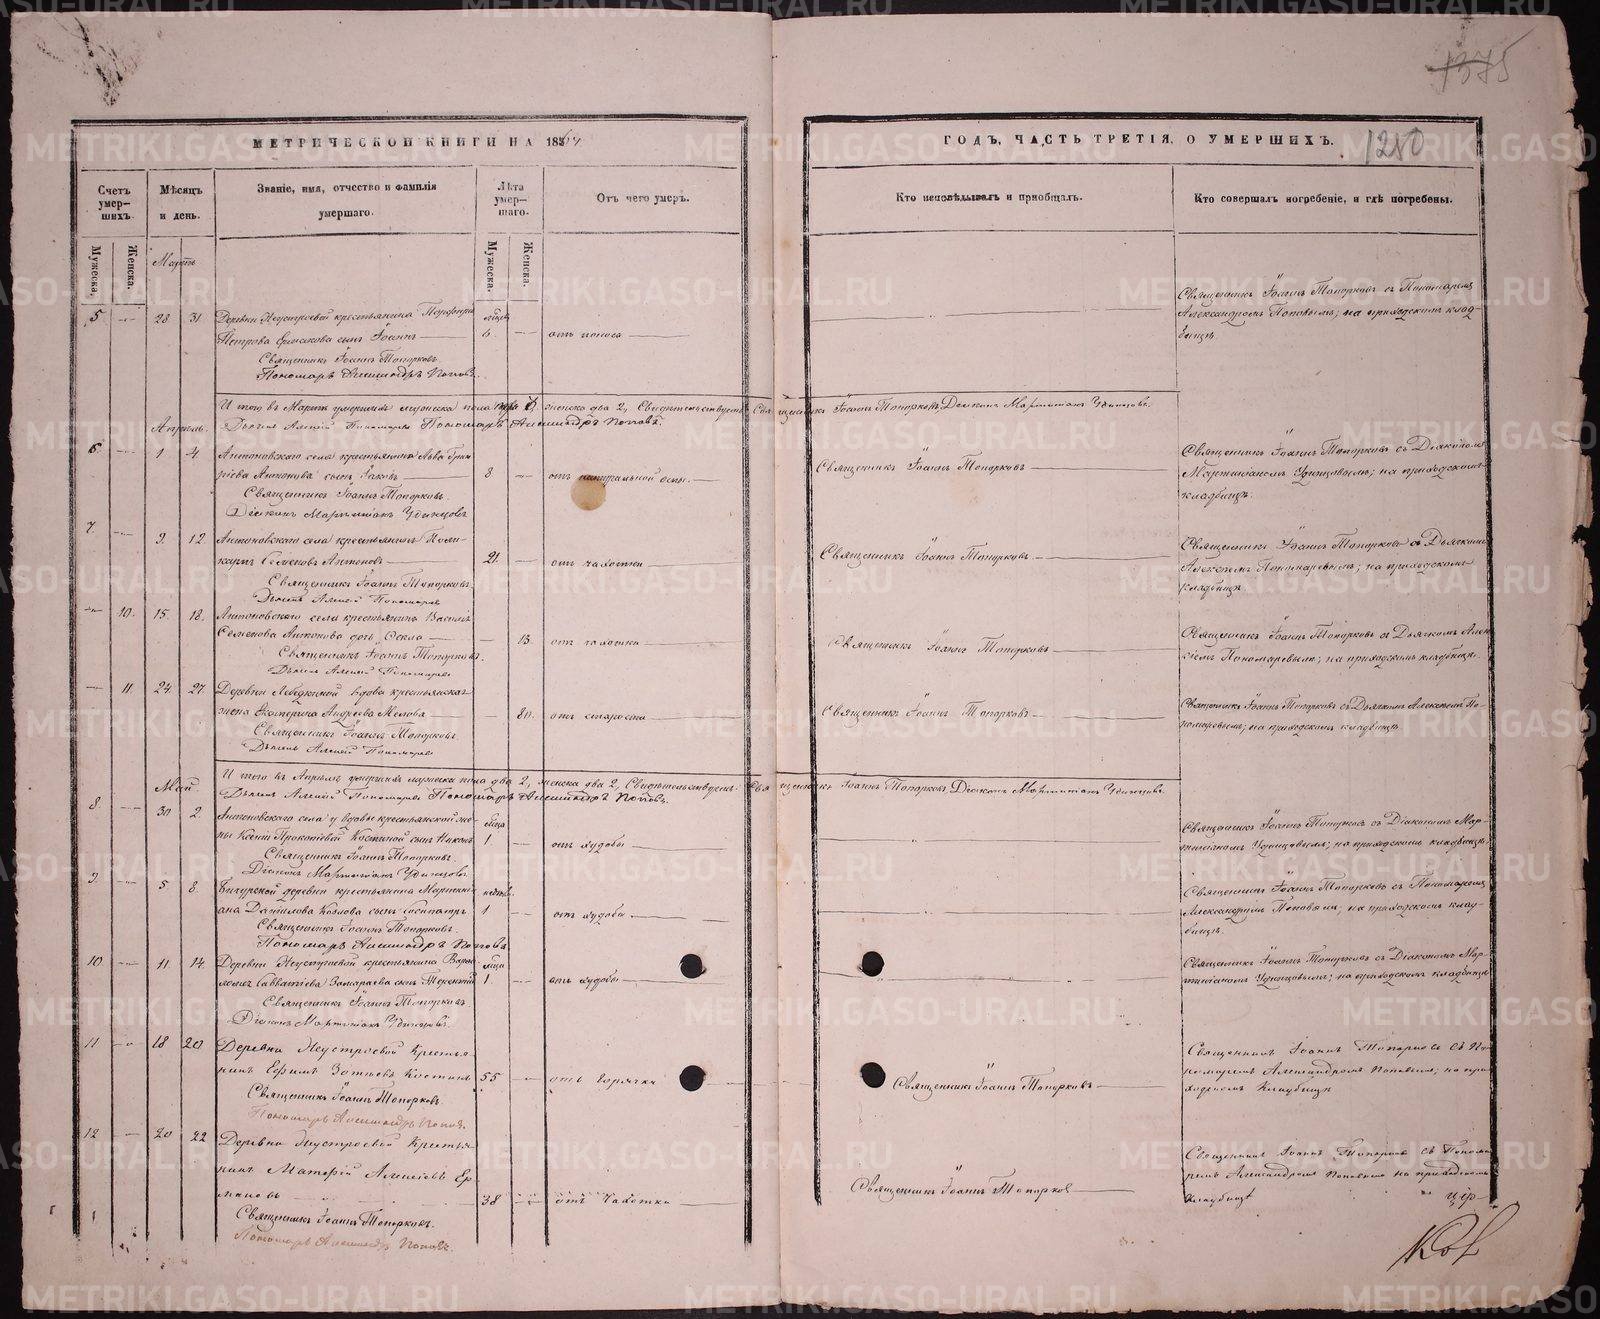 1375
МЕТРИЧЕСКОЙ КНИГИ НА 1864
ГОДЪ, ЧАСТЬ ТРЕТІЯ, О УМЕРШИХЪ.
1250
Счетъ умер—шихъ.
Мѣсяцъ и день.
Званіе, имя, отчество и фамилія умершаго.
Лѣта умер—шаго.
Отъ чего умеръ.
Кто исповѣдывалъ и пріобщалъ.
Кто совершалъ погребеніе, и гдѣ погребены.
Мужеска.
Женска.
Мужеска.
Женска.
Мартъ
5 28 31 Деревни Неустроевой крестьянина
Петрова сынъ Іоаннъ 6. отъ поноса
Священникъ Іоаннъ Топорковъ.
Пономарь Александръ Поповъ.
Священникъ Іоаннъ Топорковъ съ Пономаремъ
Александромъ Поповымъ; на приходскомъ клад-
бищѣ.
И того въ Мартѣ умершихъ мужеска пола женска два 2, Свидѣтельствуемъ: Священникъ Іоаннъ Топорковъ, Діаконъ Мартиніанъ Удинцовъ.
Дьячекъ Алексій Пономаревъ Пономарь Александръ Поповъ.
Апрѣль.
6. 1 4 Антоновскаго села крестьянина Льва Григо-
рьева Антонова сынъ Іаковъ 8 отъ натуральной оспы.
Священникъ Іоаннъ Топорковъ.
Діаконъ Мартиніанъ Удинцовъ
Священникъ Іоаннъ Топорковъ
Священникъ Іоаннъ Топорковъ съ Діакономъ
Мартиніаномъ Удинцовымъ; на приходскомъ
кладбищѣ.
7. 9. 12. Антоновскаго села крестьянинъ Поли-
карпъ Семеновъ Антоновъ 21. отъ чахотки
Священникъ Іоаннъ Топорковъ
Дьячекъ Алексій Пономаревъ
Священникъ Іоаннъ Топорковъ.
Священникъ Іоаннъ Топорковъ съ Дьячкомъ
Алексѣемъ Пономаревымъ; на приходскомъ
кладбищѣ
10. 15. 18. Антоновскаго села крестьянина Василія
Семенова Антонова дочь 13. отъ чахотки
Священникъ Іоаннъ Топорковъ.
Дьячекъ Алексій Пономаревъ
Священникъ Іоаннъ Топорковъ
Священникъ Іоаннъ Топорковъ съ Дьячкомъ Алек-
сѣемъ Пономаревымъ; на приходскомъ кладбищѣ.
11 24 27 Деревни Лебедкиной вдова крестьянская
жена Екатерина Андреева 80. отъ старости
Священникъ Іоаннъ Топорковъ.
Дьячекъ Алексій Пономаревъ
Священникъ Іоаннъ Топорковъ
Священникъ Іоаннъ Топорковъ съ Дьячкомъ Алексѣемъ По-
номаревымъ; на приходскомъ кладбищѣ
И того въ Апрѣлѣ умершихъ мужеска пола два 2, женска два 2, Свидѣтельствуемъ: Священникъ Іоаннъ Топорковъ, Діаконъ Мартиніанъ Удинцовъ.
Дьячекъ Алексій Пономаревъ Пономарь Александръ Поповъ.
Май.
8. 30 2. Антоновскаго села у вдовы крестьянской же-
ны Ксеніи Прокопьевой Костиной сынъ 1 отъ худобы
Священникъ Іоаннъ Топорковъ.
Діаконъ Мартиніанъ Удинцовъ
Священникъ Іоаннъ Топорковъ съ Діакономъ Мар-
тиніаномъ Удинцовымъ; на приходскомъ кладбищѣ.
9. 5 8. Бичурской деревни крестьянина Мартині-
ана Данилова Козлова сынъ 1 отъ худобы
Священникъ Іоаннъ Топорковъ.
Пономарь Александръ Поповъ
Священникъ Іоаннъ Топорковъ съ Пономаремъ
Александромъ Поповымъ; на приходскомъ клад-
бищѣ.
10 11. 14. Деревни Неустроевой крестьянина Варѳо-
ломея Савватіева Замараева сынъ Терентій 1. отъ худобы
Священникъ Іоаннъ Топорковъ
Діаконъ Мартиніанъ Удинцовъ.
Священникъ Іоаннъ Топорковъ съ Діакономъ Мар-
тиніаномъ Удинцовымъ; на приходскомъ кладбищѣ
11 18 20 Деревни Неустроевой Крестья-
нинъ Ефимъ Зотѣевъ Костинъ 55 отъ горячки
Священникъ Іоаннъ Топорковъ.
Пономарь Александръ Поповъ.
Священникъ Іоаннъ Топорковъ
Священникъ Іоаннъ Топорковъ съ По-
номаремъ Александромъ Поповымъ; на при-
ходскомъ Кладбищѣ
12 20 22 Деревни Неустроевой Крестья-
нинъ Алексѣевъ Ер-
маковъ 38 отъ чахотки
Священникъ Іоаннъ Топорковъ.
Пономарь Александръ Поповъ.
Священникъ Іоаннъ Топорковъ
Священникъ Іоаннъ Топорковъ съ Понома-
ремъ Александромъ Поповымъ на приходскомъ
кладбищѣ
METRIKI.GASO-URAL.RU